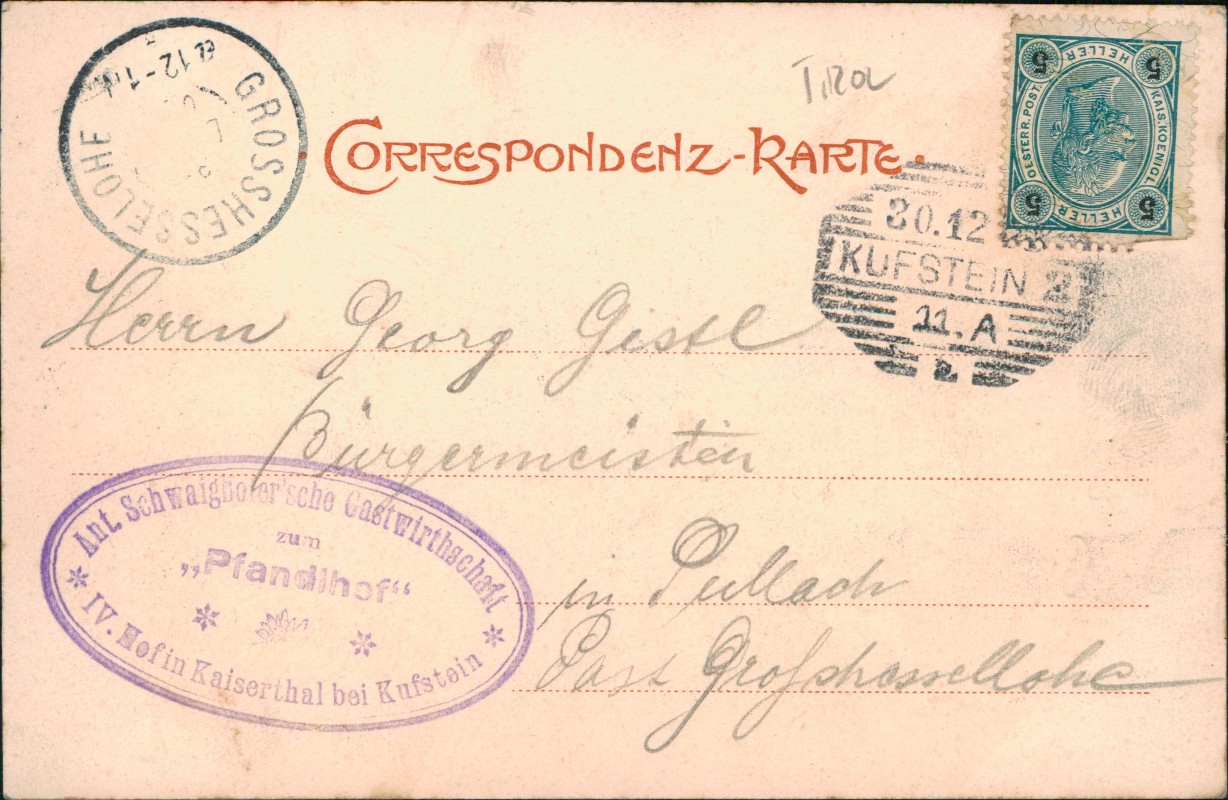 GROSSHESSELOHE
12-1
Tirol
CORRESPONDENZ-KARTE.
5 HELLER 5
OESTERR. POST. KAIS. KOENIGL.
5 HELLER 5
30.12
KUFSTEIN 2
11.A
Herrn Georg Gestl
Bürgermeister
in Pullach
Post Großhessellohe
Ant. Schwaighofer'sche Gastwirthschaft
zum
„Pfandlhof“
IV. Hof in Kaiserthal bei Kufstein